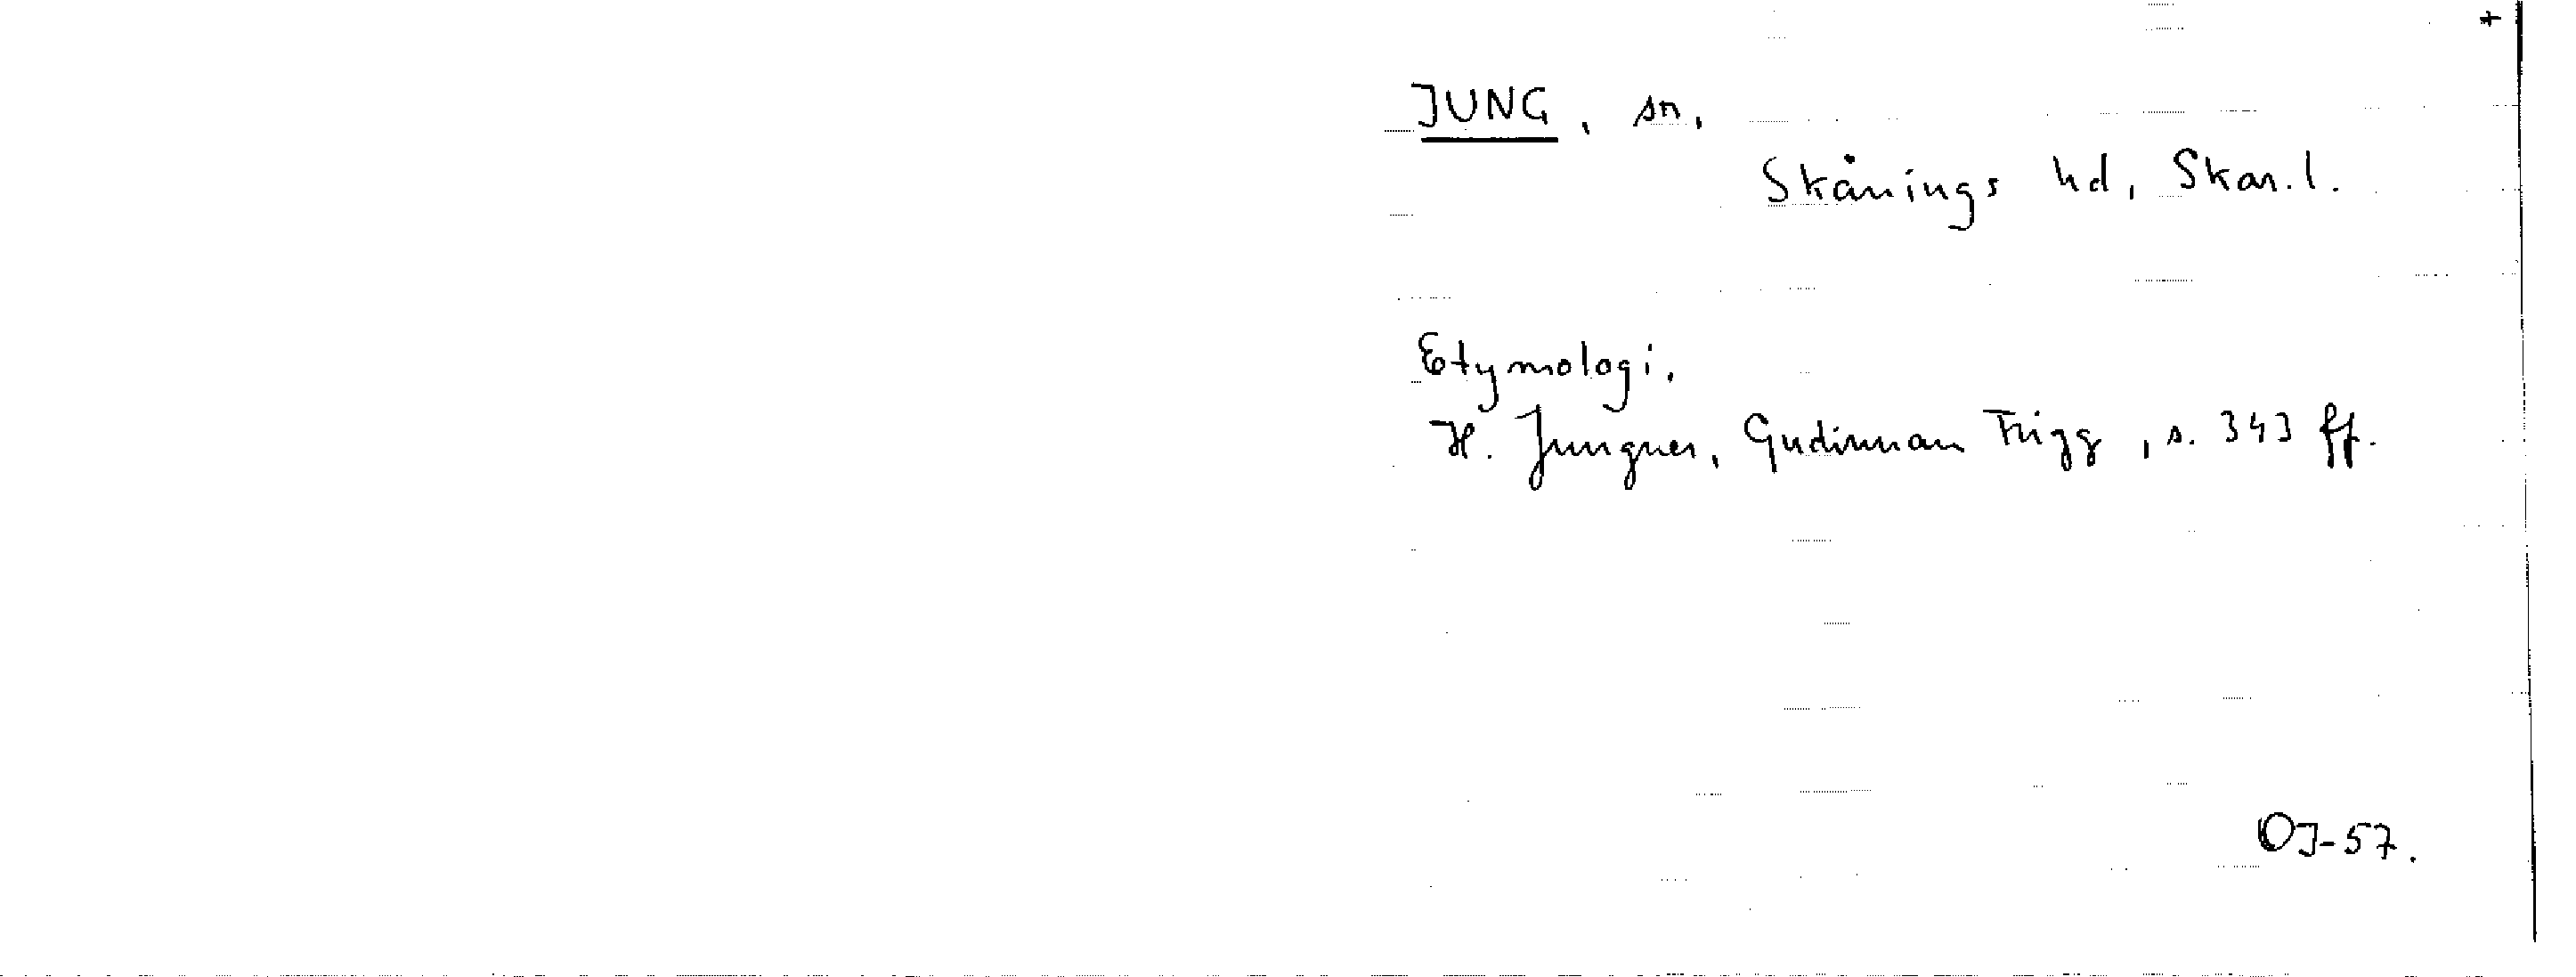 +
JUNG, sn,
Skånings hd, Skar.l.
Etymologi.
H. Jungner, Gudinnan Frigg, s. 343 ff.
OJ-57.